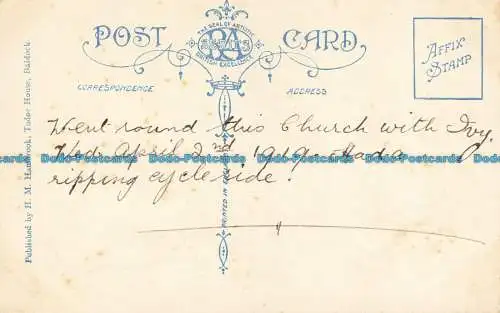 POST CARD
THE SEAL OF ARTISTIC
BRITISH EXCELLENCE
CORRESPONDENCE
ADDRESS
AFFIX
STAMP
Went round this Church with Ivy.
Wed. April 2nd 1919. Had a
ripping cycle ride.
Published by H. M. Tudor House, Baldock
PRINTED IN
Dodo-Postcards Dodo-Postcards Dodo-Postcards Dodo-Postcards